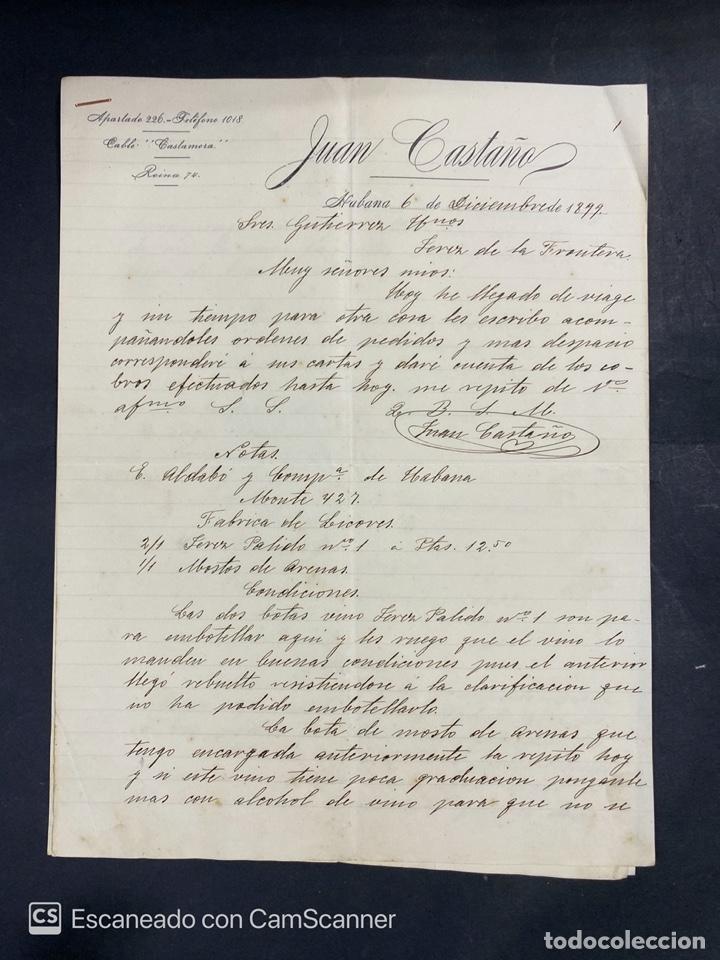 Apartado 226.-Teléfono 1018
Cable: "Castamera"
Reina 74.
1
Juan Castaño
Habana 6 de Diciembre de 1899
Sres. Gutierrez Hnos
Jerez de la Frontera.
Muy señores mios:
Hoy he llegado de viage
y sin tiempo para otra cosa les escribo acom-
pañandoles ordenes de pedidos y mas despacio
corresponderé á sus cartas y daré cuenta de los co-
bros efectuados hasta hoy. me repito de Vs
afmo S. S. Q. B. S. M.
Juan Castaño
Notas
E. Aldabó y Compª de Habana
Monte 427.
Fabrica de Licores.
2/1 Jerez Palido nro. 1 á Ptas. 12.50
1/1 Mostos de Arenas.
Condiciones.
Las dos botas vino Jerez Palido nro. 1 son pa-
ra embotellar aqui y les ruego que el vino lo
manden en buenas condiciones pues el anterior
llegó rebuelto resistiendose á la clarificacion que
no ha podido embotellarlo.
La bota de mosto de arenas que
tengo encargada anteriormente la repito hoy
y si este vino tiene poca graduacion ponganle
mas con alcohol de vino para que no se
CS Escaneado con CamScanner
todocoleccion